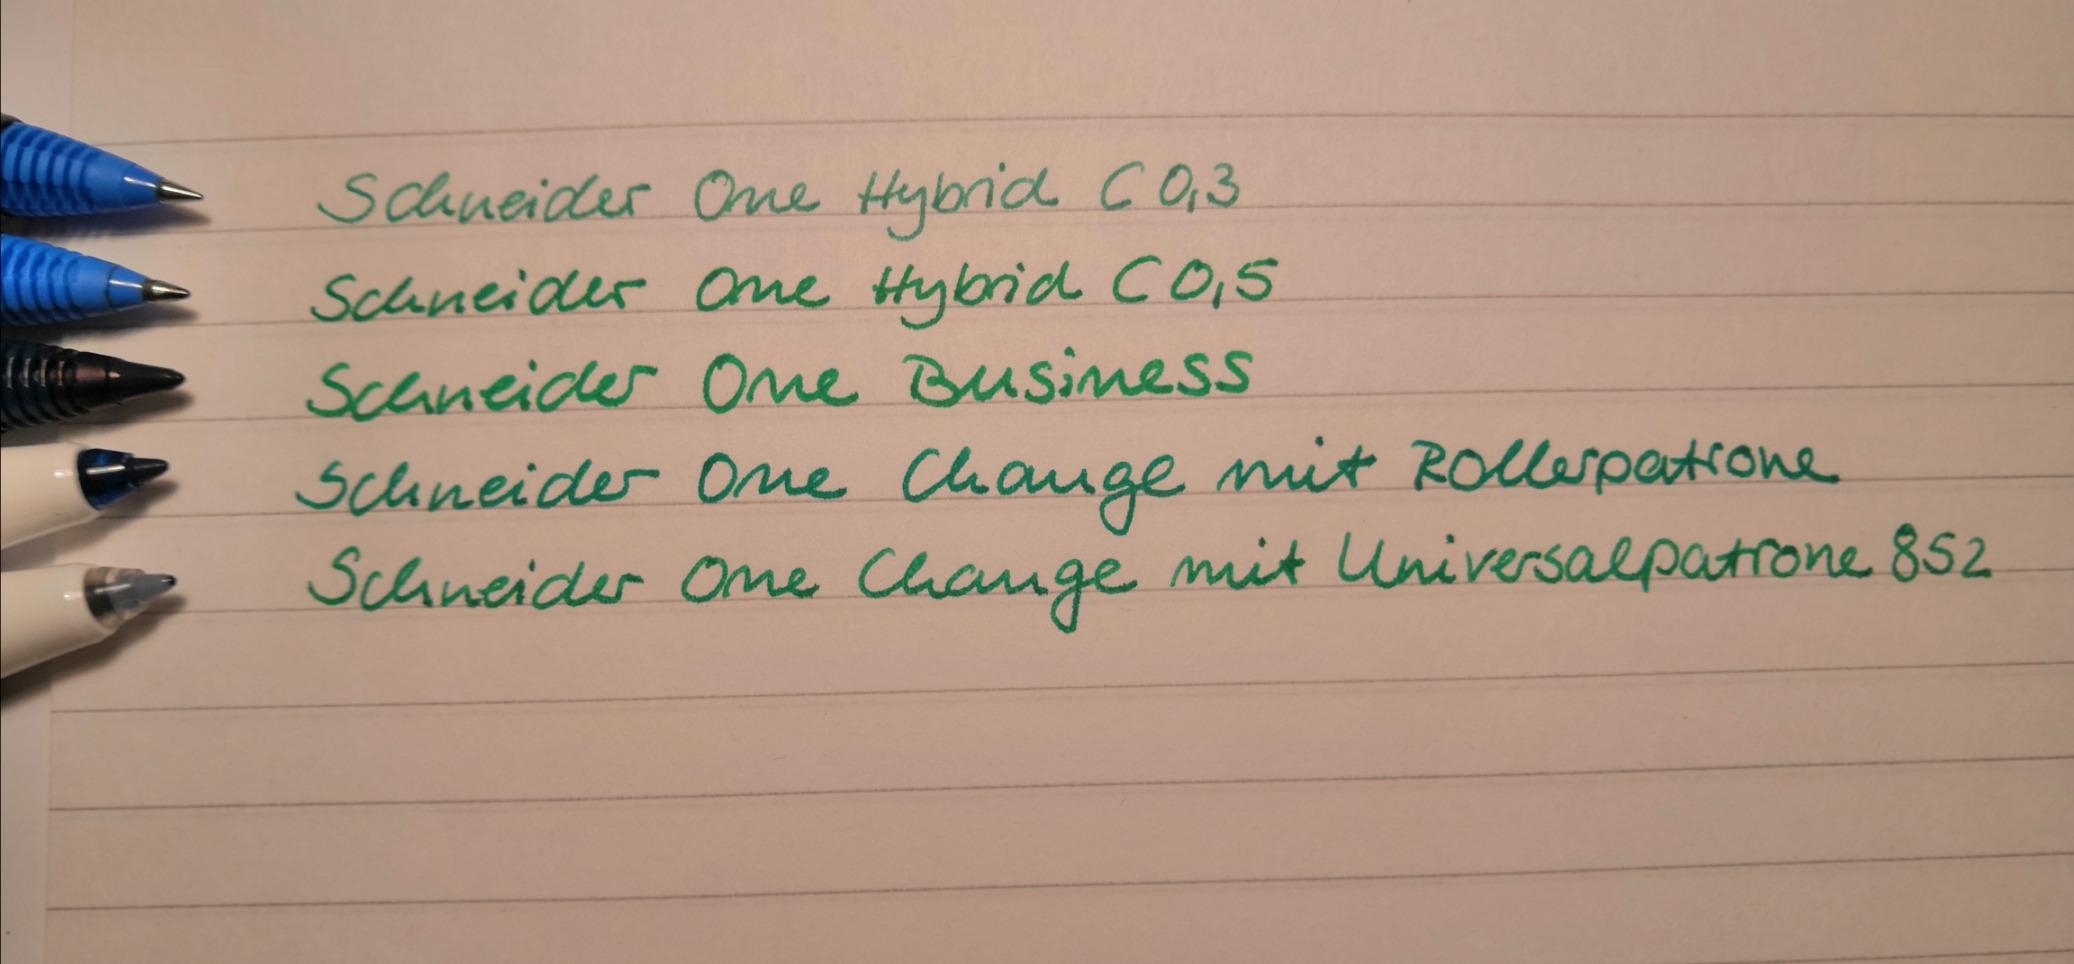 Schneider One Hybrid C 0,3
Schneider One Hybrid C 0,5
Schneider One Business
Schneider One Change mit Rollerpatrone
Schneider One Change mit Universalpatrone 852